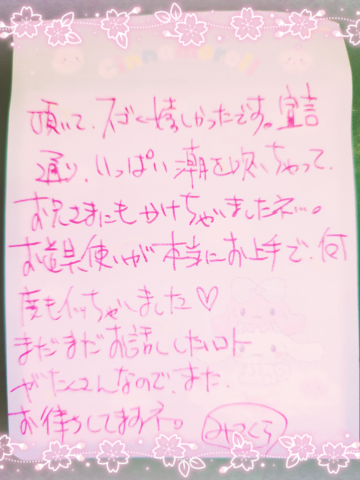 頂いて、スゴく嬉しかったです。宣言
通り、いっぱい潮を吹いちゃって、
お兄さまにもかけちゃいましたネ…。
お道具使いが本当にお上手で、何
度もイッちゃいました♡
まだまだお話ししたいコト
がたくさんなので、また、
お待ちしてますネ。